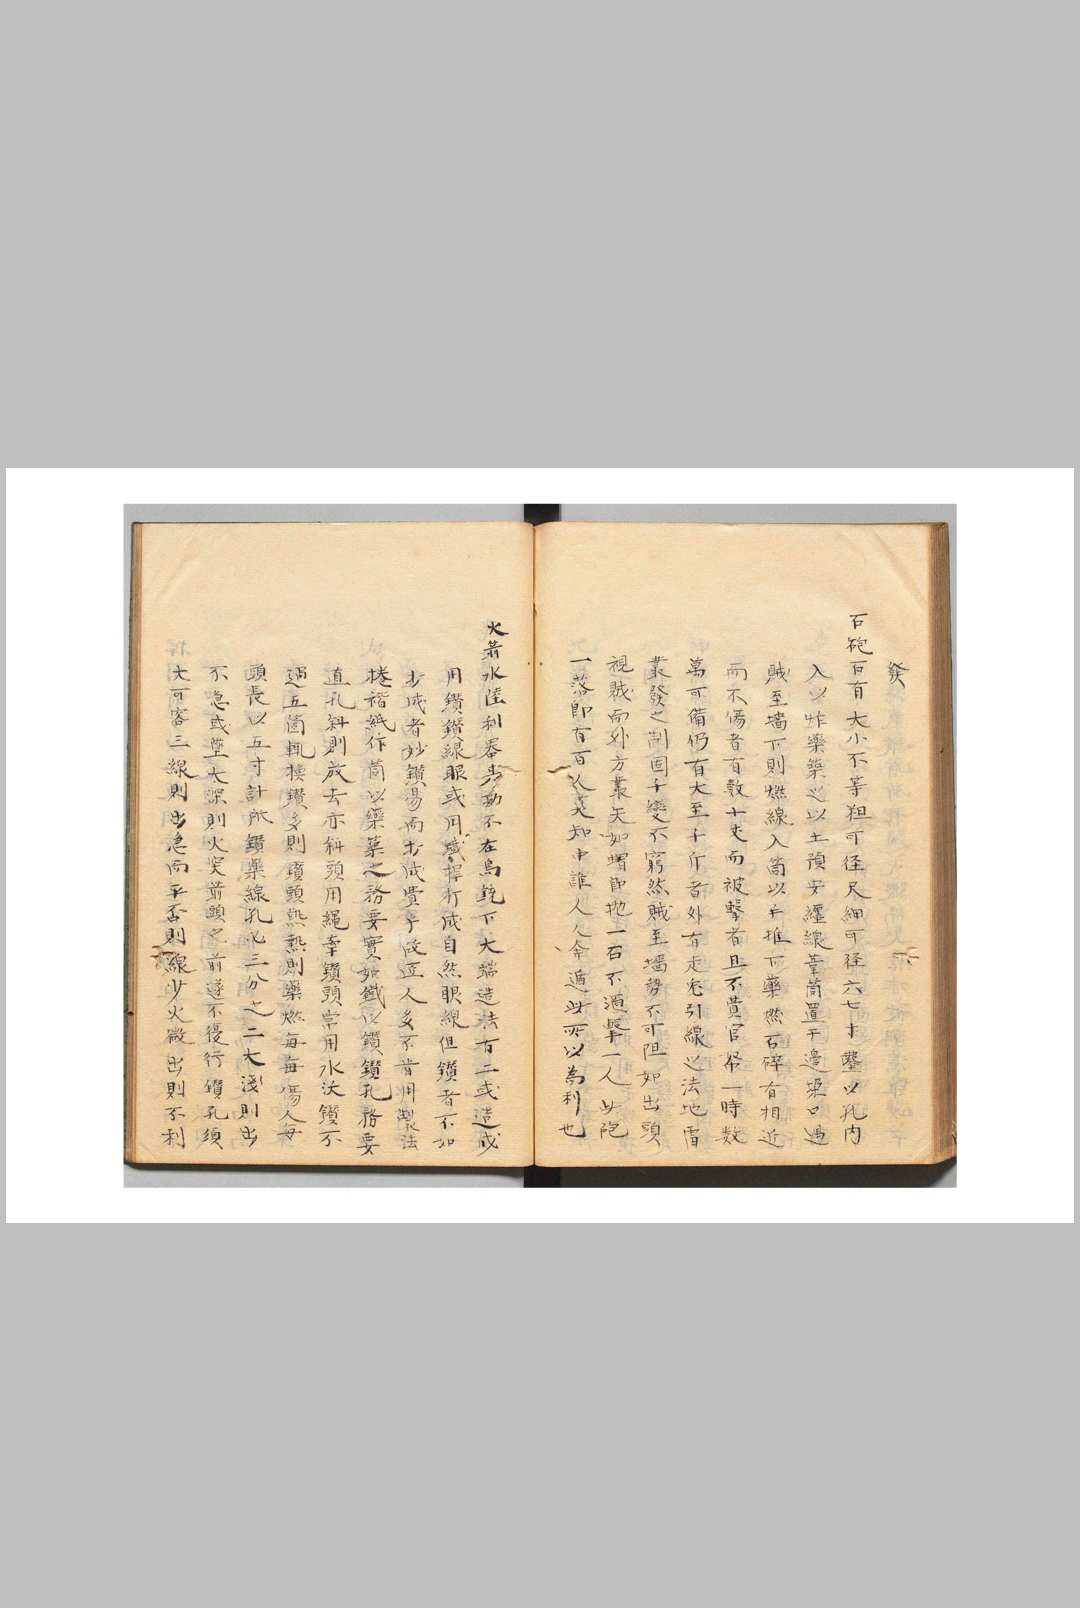 發
石砲石有大小不等粗可徑尺細可徑六七寸鑿以孔內
入以炸藥築之以土預安纏線葦筒置于邊梁口過
賊至墻下則燃線入筒以手推下藥燃石碎有相近
而不傷者百數十丈而被擊者且不費官帑一時數
萬可備仍有大至千斤者外有走兔引線之法地雷
叢發之制固千變不窮然賊至墻勢不可阻如出頭
視賊而外方叢矢如蝟即拋一石不過擊一人此砲
一落即有百人莫知中誰人人奔遁此所以為利也
火箭水陸利器步動不在鳥銃下大端造法有二或造成
用鑽鑽線眼或用鐵捍打成自然眼線但鑽者不如
打成者妙鑽湯而打成貴手故匠人多不肯用製法
捲褙紙作筒以藥築之務要實如鐵以鑽鑽孔務要
直孔斜則放去亦斜頭用繩牽鑽頭常用水沃鑽不
過五箇輒換鑽多則鑽頭熱熱則藥燃每每傷人每
頭長以五寸計所鑽藥線孔必三分之二大淺則出
不急或墜大深則火突箭頭之前遂不復行鑽孔須
大可容三線則出急而平否則線少火微出則不利